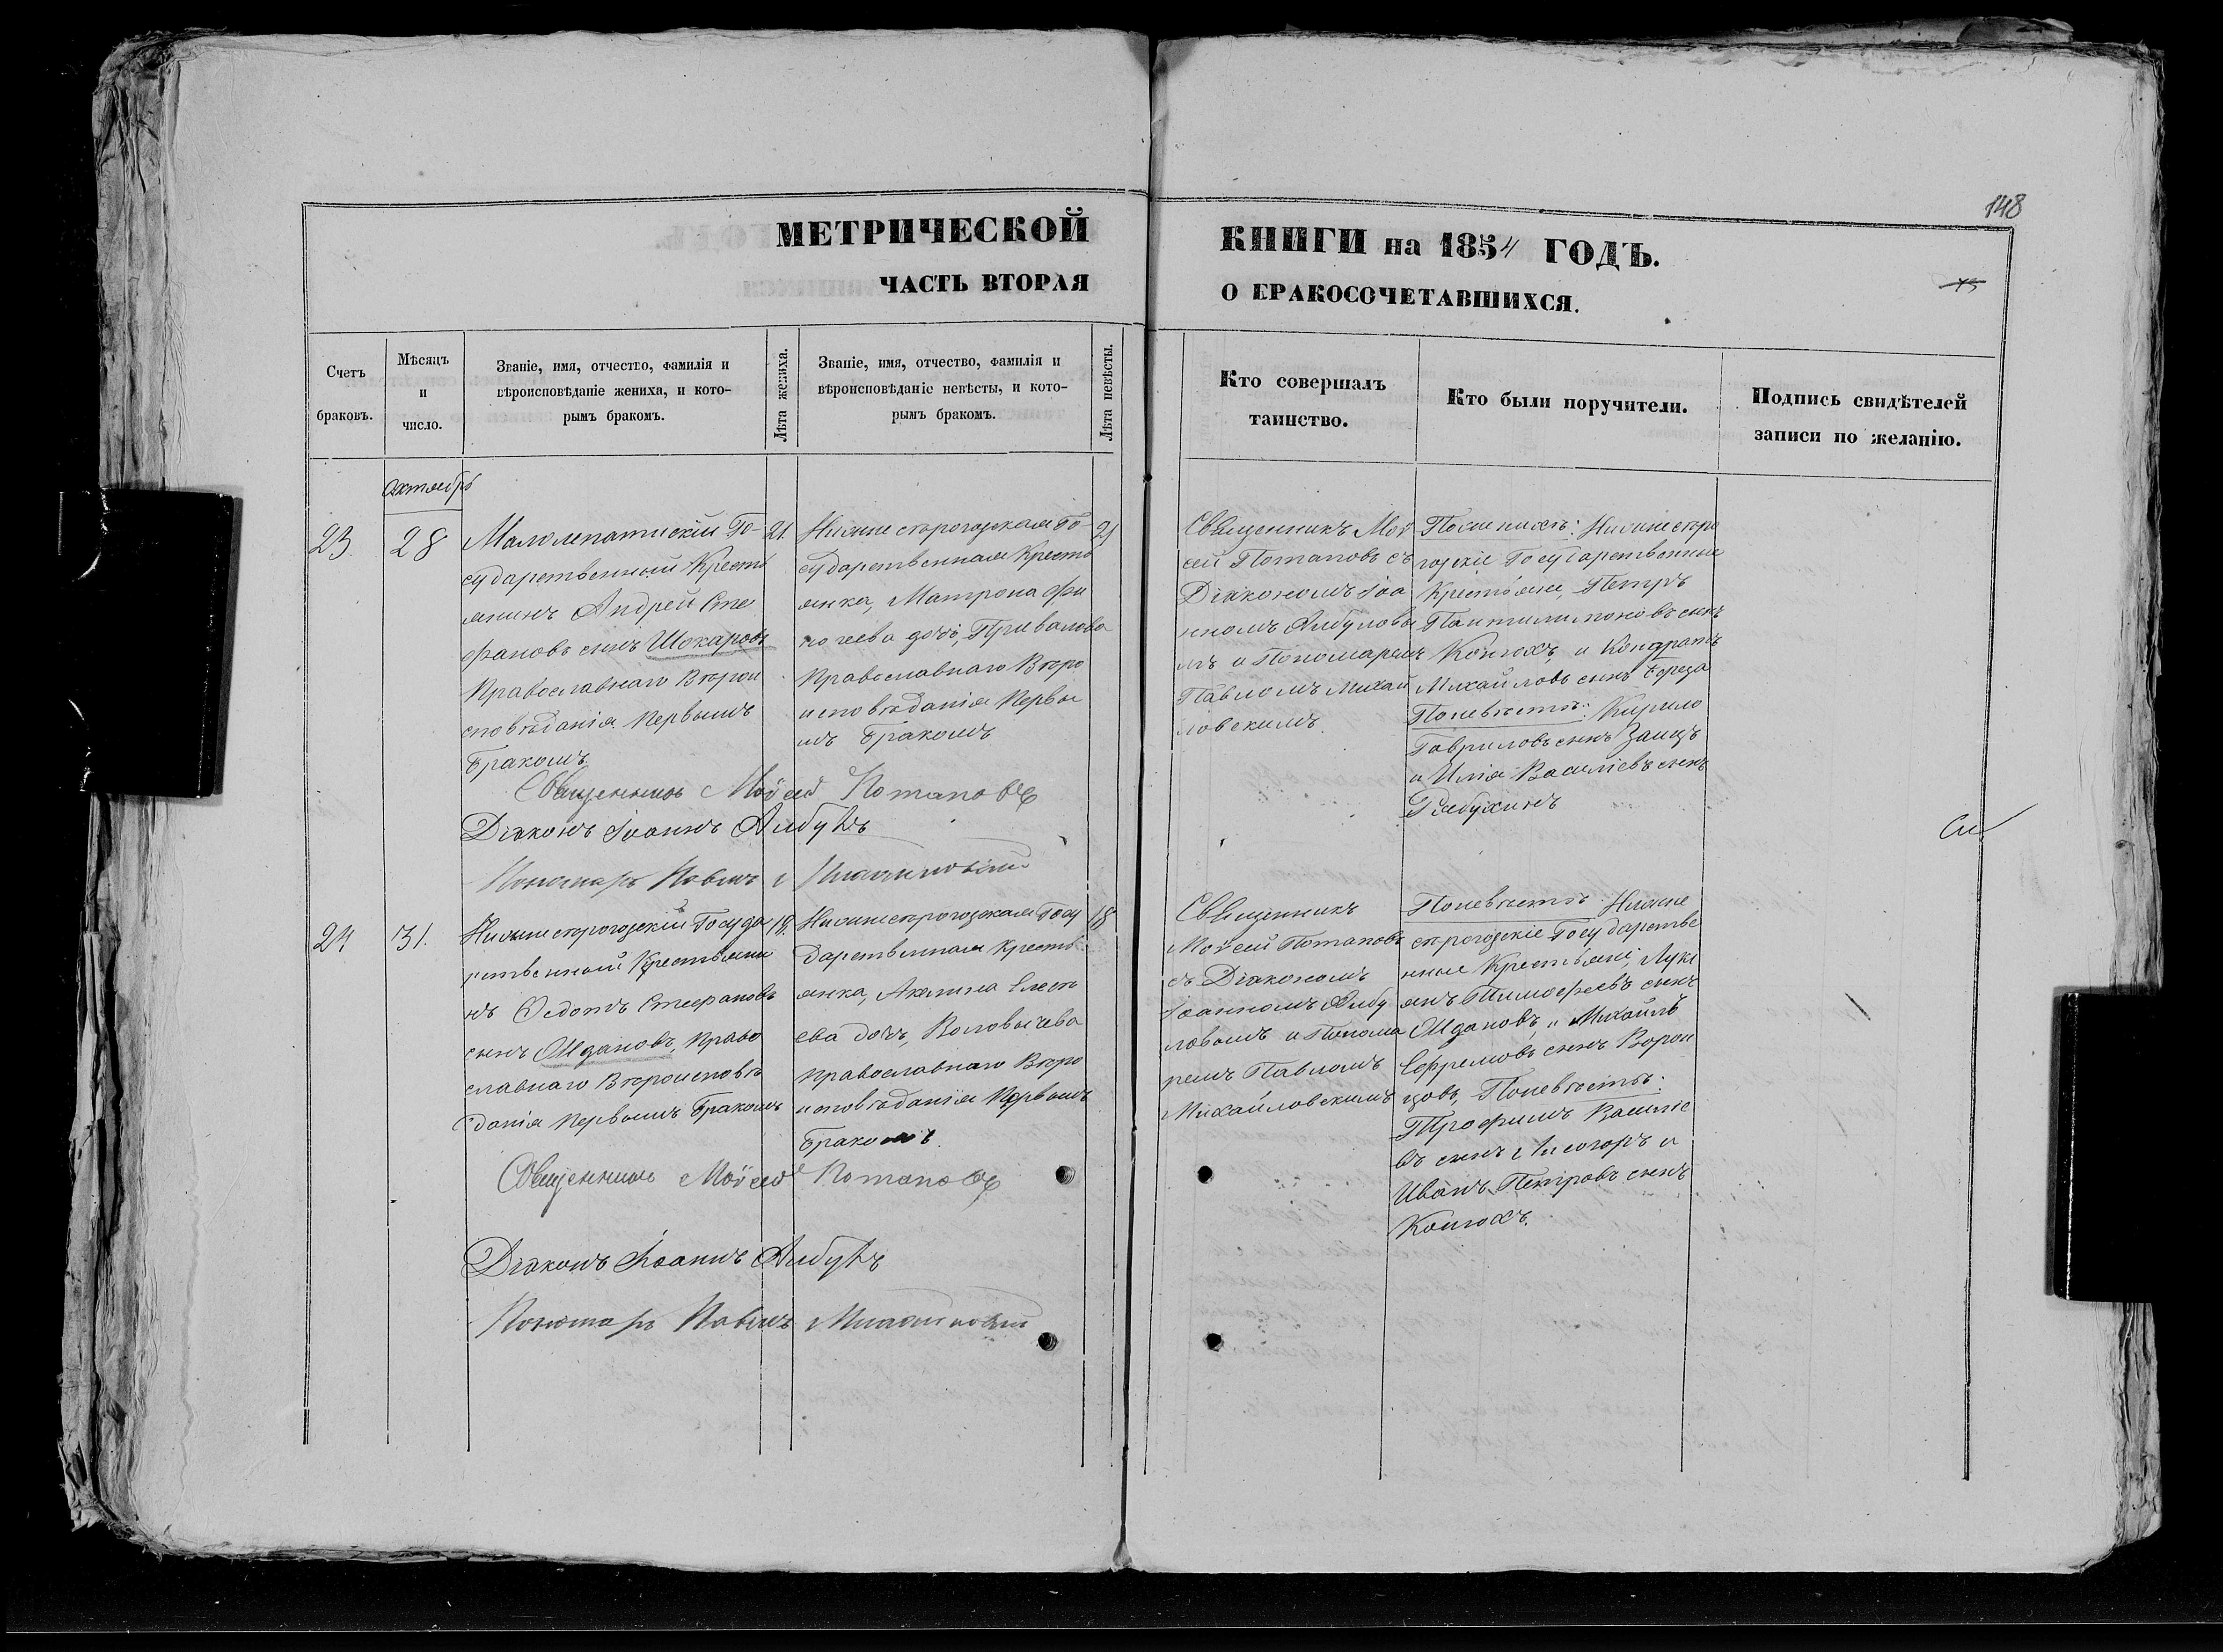 148
МЕТРИЧЕСКОЙ
КНИГИ на 1854 ГОДЪ.
ЧАСТЬ ВТОРАЯ
О БРАКОСОЧЕТАВШИХСЯ.
Счетъ
браковъ.
Мѣсяцъ
и
число.
Званіе, имя, отчество, фамилія и
вѣроисповѣданіе жениха, и кото-
рымъ бракомъ.
Лѣта жениха.
Званіе, имя, отчество, фамилія и
вѣроисповѣданіе невѣсты, и кото-
рымъ бракомъ.
Лѣта невѣсты.
Кто совершалъ
таинство.
Кто были поручители.
Подпись свидѣтелей
записи по желанію.
Октябрь
23.
28
Малолепатискій Го-
сударственный Кресть
янинъ Андрей Сте
фановъ сынъ Шокаровъ
Православнаго Вѣрои
сповѣданія Первымъ
бракомъ.
21.
Нижнесѣрогозская Го-
сударственная Кресть
янка, Матрона Фи
погеева дочь, Привалова
Православнаго Вѣро
исповѣданія Первы
мъ бракомъ
21
Священникъ Мої
сей Потаповъ съ
Діакономъ Іоа
нномъ Албуловы
мъ и Пономаремъ
Павломъ Михай
ловскимъ.
Поженихѣ: Нижнесѣро
гозскіе Государственные
Крестьяне, Петръ
Пантилимоновъ сынъ
Конюхъ, и Кондратъ
Михайловъ сынъ Береза
Поневѣстѣ: Кирило
Гавриловъ сынъ Заицъ
и Илія Василіевъ сынъ
Рябухинъ
Священникъ Моїсей Потаповъ
Діаконъ Іоаннъ Албулъ
Пономарь Павелъ Михайловскій
24
31.
Нижнесѣрогозскій Госуда
рственный Крестьяни
нъ Ѳедотъ Стефановъ
сынъ Ждановъ, Право
славнаго Вѣроисповѣ
данія Первымъ Бракомъ
19.
Нижнесѣрогозская Госу
дарственная Кресть
янка, Акилина Елесѣ
ева дочь, Воловичева
Православнаго Вѣро
исповѣданія Первымъ
бракомъ.
18
Священникъ
Моїсей Потаповъ
съ Діакономъ
Іоанномъ Албу
ловымъ и Понома
ремъ Павломъ
Михайловскимъ
Поневѣстѣ Нижне
сѣрогозскіе Государстве
нные Крестьяне, Лукі
янъ Тимофеевъ сынъ
Ждановъ и Михаилъ
Ефремовъ сынъ Ворон
цовъ, Поневѣстѣ:
Трофимъ Василіе
въ сынъ Лисогоръ и
Иванъ Петровъ сынъ
Конюхъ.
Священникъ Моїсей Потаповъ
Діаконъ Іоаннъ Албулъ
Пономарь Павелъ Михайловскій